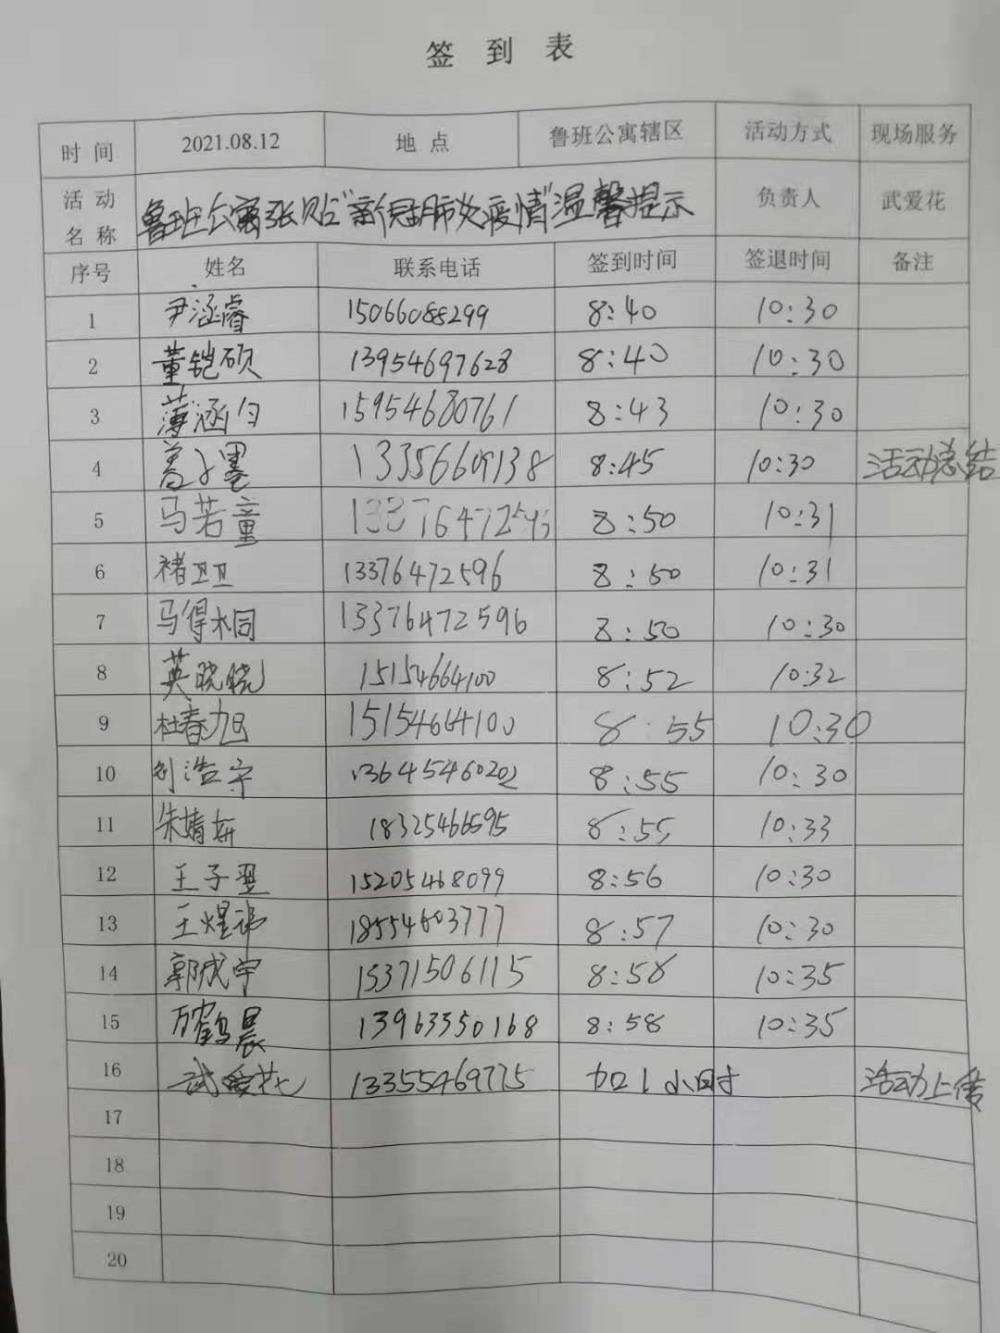 签到表
时间 2021.08.12 地点 鲁班公寓辖区 活动方式 现场服务
活动名称 鲁班公寓张贴“新冠肺炎疫情”温馨提示 负责人 武爱花
序号 姓名 联系电话 签到时间 签退时间 备注
1 尹涵睿 15066088299 8:40 10:30
2 董铠硕 13954697628 8:40 10:30
3 薄涵匀 15954680761 8:43 10:30
4 13356609138 8:45 10:30 活动总结
5 马若童 8:50 10:31
6 褚卫卫 13376472596 8:50 10:31
7 马得水同 13376472596 8:50 10:30
8 英晓晓 15154664100 8:52 10:32
9 杜春旭 15154664100 8:55 10:30
10 刘浩宇 13645460202 8:55 10:30
11 朱婧妍 18325466595 8:55 10:33
12 王子翌 15205468099 8:56 10:30
13 王煜祎 18554603777 8:57 10:30
14 郭成宇 15371506115 8:58 10:35
15 万鹤晨 13963550168 8:58 10:35
16 武爱花 13355469775 加1小时 活动上传
17
18
19
20